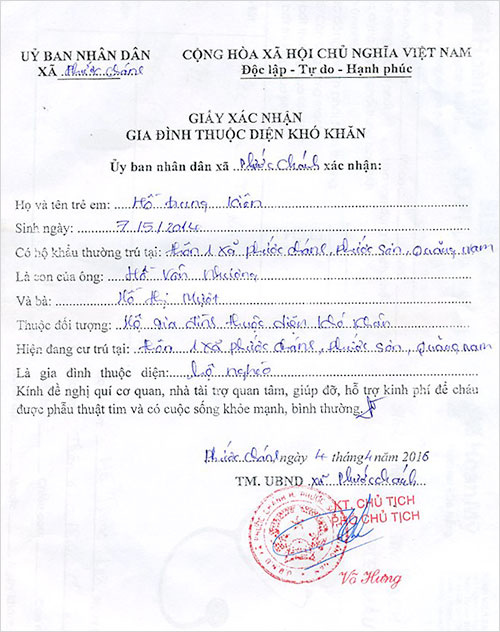 UỶ BAN NHÂN DÂN
XÃ Phước Chánh
CỘNG HÒA XÃ HỘI CHỦ NGHĨA VIỆT NAM
Độc lập - Tự do - Hạnh phúc
GIẤY XÁC NHẬN
GIA ĐÌNH THUỘC DIỆN KHÓ KHĂN
Ủy ban nhân dân xã Phước Chánh xác nhận:
Họ và tên trẻ em: Hồ Trung Kiên
Sinh ngày: 7/5/2014
Có hộ khẩu thường trú tại: thôn 1 xã Phước Chánh, Phước Sơn, Quảng Nam
Là con của ông: Hồ Văn
Và bà: Hồ Thị
Thuộc đối tượng: Hộ gia đình thuộc diện khó khăn
Hiện đang cư trú tại: thôn 1 xã Phước Chánh, Phước Sơn, Quảng Nam
Là gia đình thuộc diện: hộ nghèo
Kính đề nghị quí cơ quan, nhà tài trợ quan tâm, giúp đỡ, hỗ trợ kinh phí để cháu
được phẫu thuật tim và có cuộc sống khỏe mạnh, bình thường.
Phước Chánh ngày 4 tháng 4 năm 2016
TM. UBND xã Phước Chánh
KT. CHỦ TỊCH
PHÓ CHỦ TỊCH
Võ Hưng